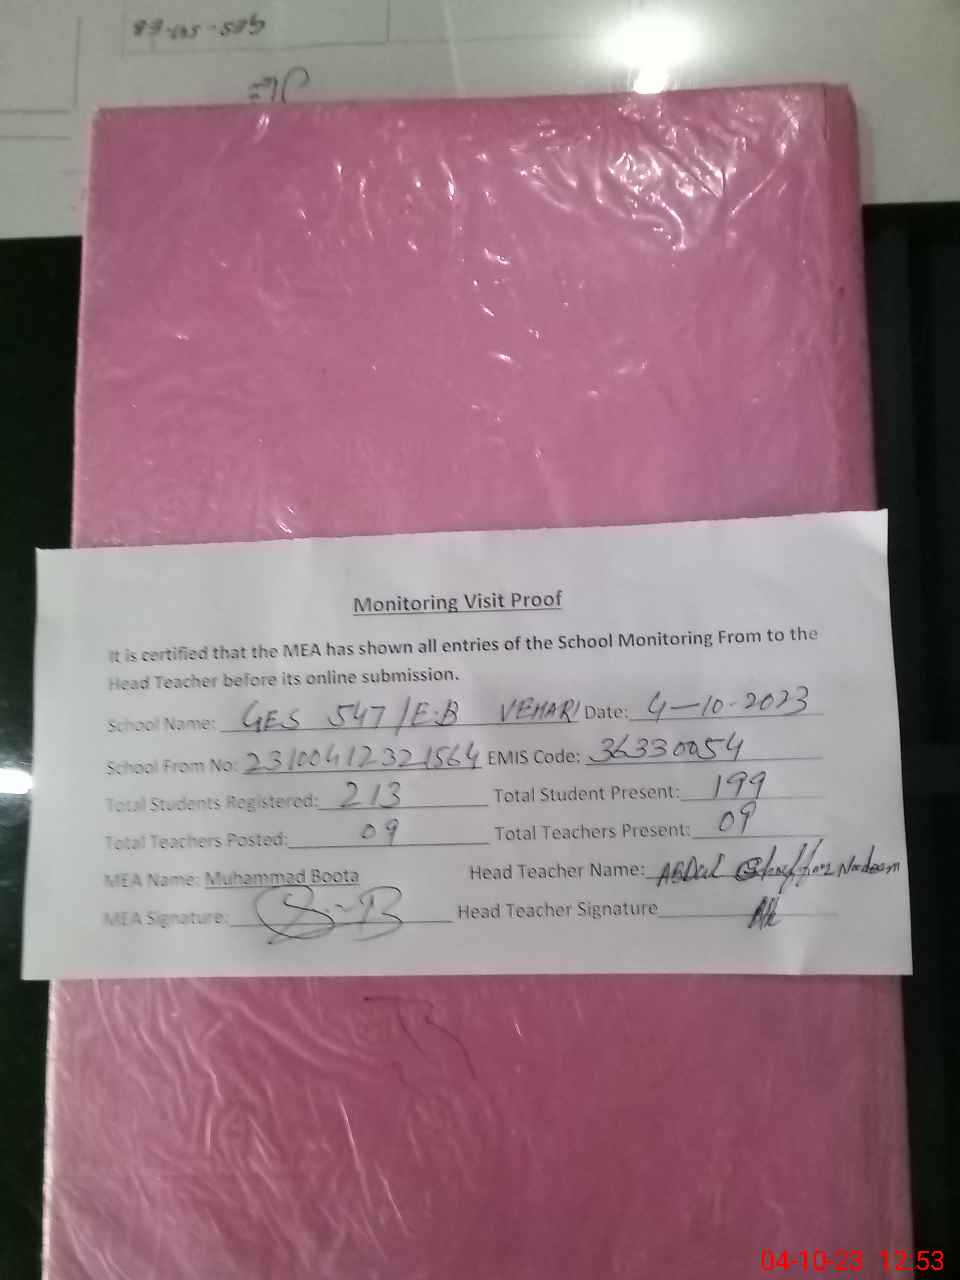 Monitoring Visit Proof
It is certified that the MEA has shown all entries of the School Monitoring From to the
Head Teacher before its online submission.
School Name: GES 547/E.B VEHARI Date: 4-10-2023
School From No: 231004123321564 EMIS Code: 36330054
Total Students Registered: 213 Total Student Present: 199
Total Teachers Posted: 09 Total Teachers Present: 09
MEA Name: Muhammad Boota Head Teacher Name: ABDul Ghaffar Nadeem
MEA Signature: Head Teacher Signature
04-10-23 12:53